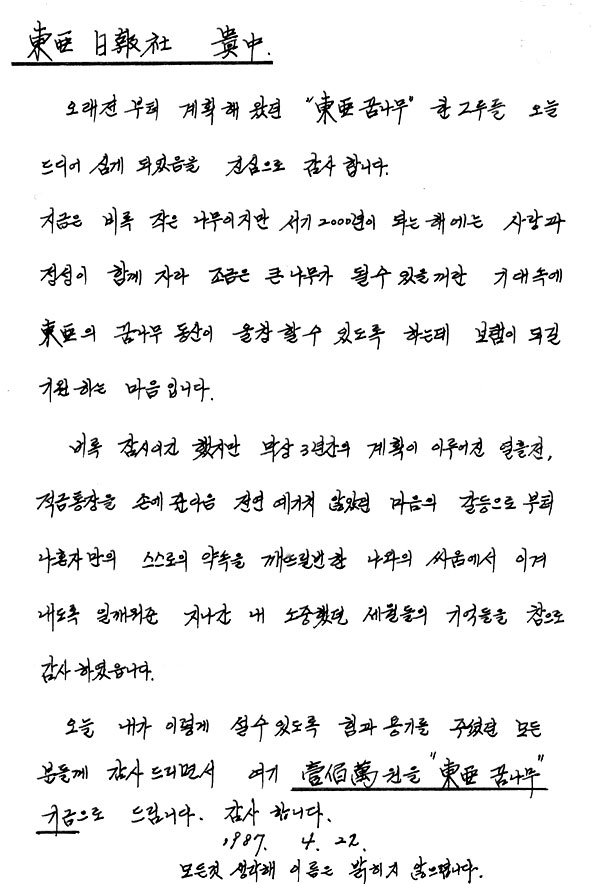 東亞日報社 貴中.
오래전 부터 계획해 왔던 "東亞 꿈나무" 한그루를 오늘
드디어 심게 되었음을 진심으로 감사 합니다.
지금은 비록 작은 나무이지만 서기 2000년이 되는 해에는 사랑과
정성이 함께 자라 조금은 큰 나무가 될수 있을꺼란 기대속에
東亞의 꿈나무 동산이 울창 할수 있도록 하는데 보탬이 되길
기원 하는 마음 입니다.
비록 잠시이긴 했지만 막상 3년간의 계획이 이루어진 열흘전,
적금통장을 손에 쥔다음 전연 예기치 않았던 마음의 갈등으로 부터
나혼자만의 스스로의 약속을 깨뜨릴번한 나와의 싸움에서 이겨
내도록 일깨워준 지나간 내 소중했던 세월들의 기억들을 참으로
감사 하였읍니다.
오늘 내가 이렇게 설수 있도록 힘과 용기를 주셨던 모든
분들께 감사 드리면서 여기 壹佰萬 원을 "東亞 꿈나무"
기금으로 드립니다. 감사 합니다.
1987. 4. 22.
모든것 생각해 이름은 밝히지 않으렵니다.